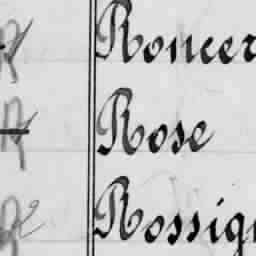 Roncer
Rose
Rossign